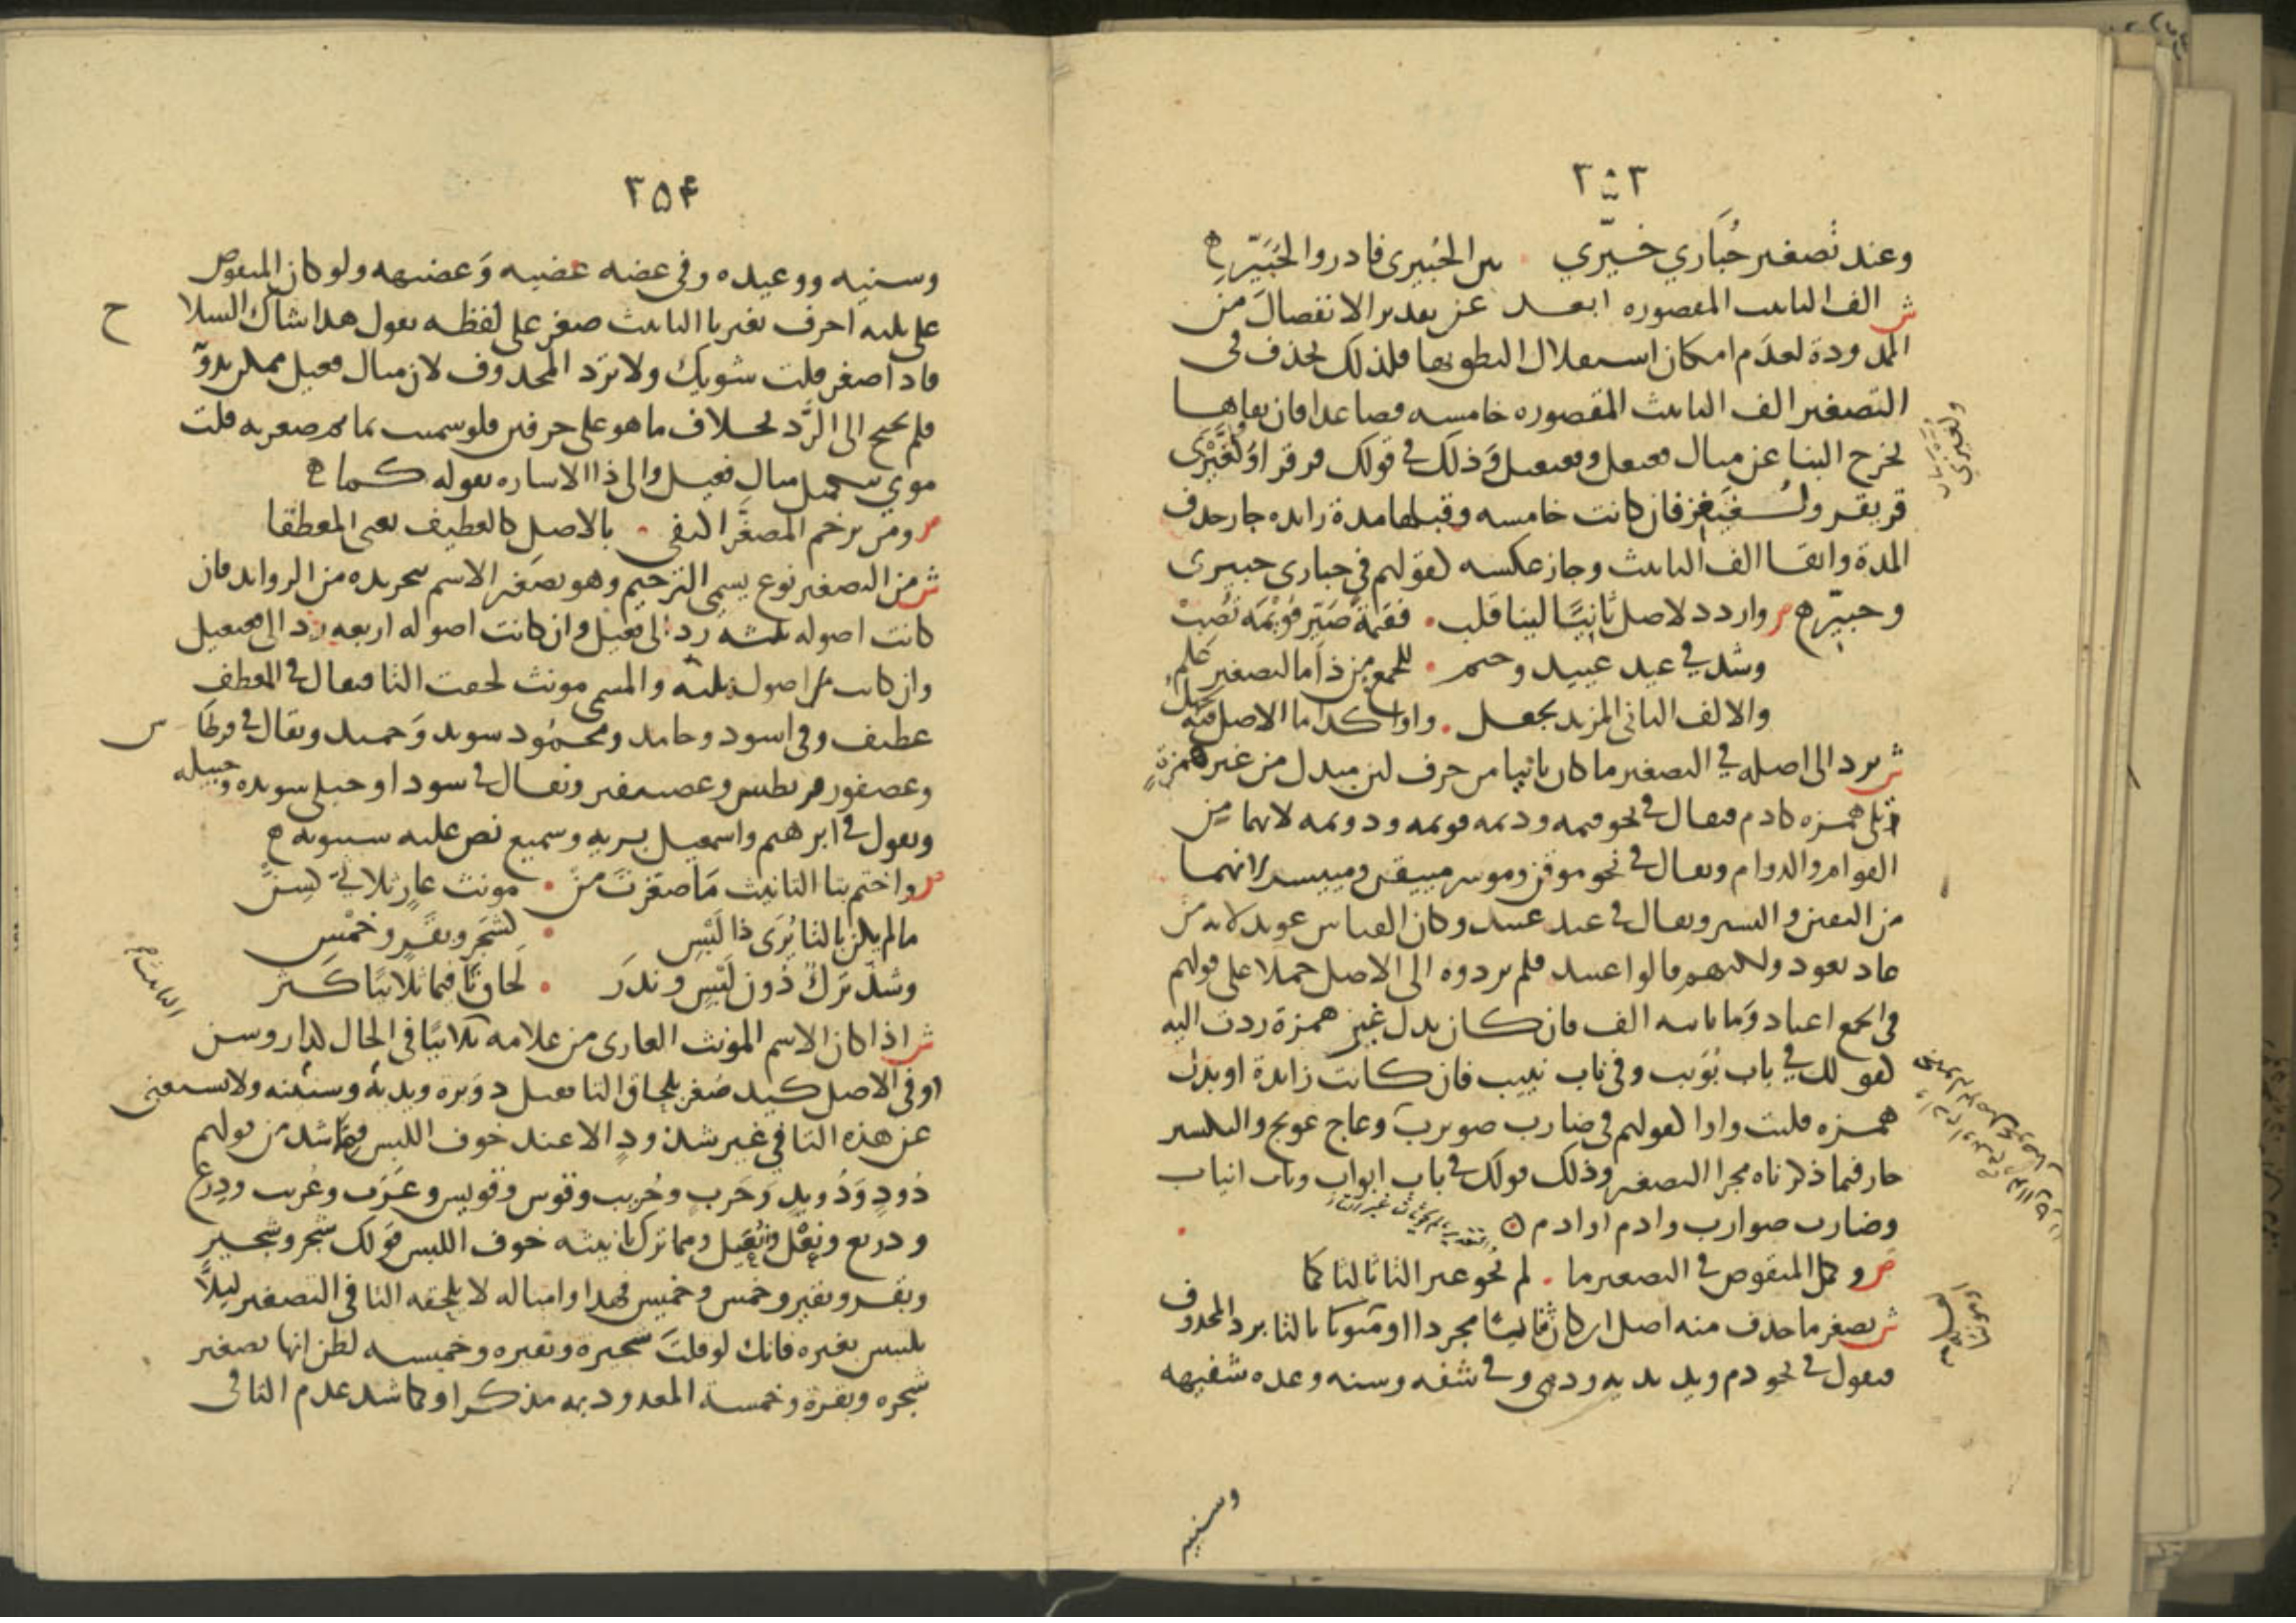 ٣٥٣
وعند تصغير حُبَاري خيّري . بين الحُبيرى فادر والحُبَيّر ه
ش الف التانيث المقصوره ابعد عن تقدير الانفصال من
الممدودة لعدم امكان استقلال النطق بها فلذلك تحذف في
التصغير الف التانيث المقصوره خامسه فصاعدا فان بقاها
يخرج البنا عن مثال فعيعل وفعيعيل وذلك في قولك قرقرا ولُغَّيْزَى
قريقر ولُغَيغِز فان كانت خامسه وقبلها مدة زايده جاز حذف
المدة وابقا الف التانيث وجاز عكسه كقولهم في حبارى حبيرى
وحبيّر ه م واردد لاصل ثانيًا لينا قلب . فقيمةً صَيّر قُوَيْمَه تُصِبْ
وشذ في عيد عييد وحتم . للجمع من ذا ما لتصغير عُلِم
والالف الثاني المزيد يجعل . واوا كذا ما الاصل فيه يجهل
ش يرد الى اصله في التصغير ما كان ثانيا من حرف لين مبدل من غير همزةٍ
تلى همزه كادم فيقال في نحو قيمه وديمه قويمه ودويمه لانهما من
القوام والدوام ويقال في نحو موقن وموسر مييقن ومييسر لانهما
من اليقين واليسر ويقال في عيد عييد وكان القياس عويد لانه من
عاد يعود ولكنهم قالوا عييد فلم يردوه الى الاصل حملا على قولهم
في الجمع اعياد وما ثانيه الف فان كان بدل غير همزة ردت اليه
كقولك في باب بُوَيب وفي ناب نييب فان كانت زايدة او بدل
همزه قلبت واوا كقولهم في ضارب صويرب وعاج عويج والتكسير
جار فيما ذكرناه مجرا التصغير وذلك قولك في باب ابواب وناب انياب
وضارب صوارب وادم اوادم
م وكمل المنقوص في التصغير ما . لم يحو غير التا ثالثا كما
ش يصغر ما حذف منه اصل ان كان ثنائيًا مجردا او مؤنثا بالتا برد المحذوف
فيقول في نحو دم ويد يديه ودمى وفي شفه وسنه وعده شفيهه
وسنيه
٣٥۴
وسنيه ووعيده وفي عضه عضيه وَعضيهه ولو كان المنقوص
على ثلثه احرف بغير تا التانيث صغر على لفظه يقول هذا شاك السلا
ح
فاذا صغر قلت شويك ولا ترد المحذوف لان مثال فعيل ممكن بدونه
فلم يحتج الى الرَّد بخلاف ما هو على حرفين فلو سميت بما ثم صغر به قلت
موي بتكميل مثال فعيل والى ذا الاشاره بقوله كما ه
م ومن بترخيم المصغَّر اكتفى . بالاصل كالعطيف يعنى المعطفا
ش من التصغير نوع يسمى الترخيم وهو تصغير الاسم بتجريده من الزوايد فان
كانت اصوله ثلثه رد الى فعيل وان كانت اصوله اربعه رد الى فعيعل
وان كانت اصوله ثلثه والمسمى مونث لحقت التا فيقال في المعطف
عطيف وفي اسود وحامد ومحمُود سويد وَحميد ويقال في قرطاس
وعصفور قريطس وعصيفر ويقال في سودا وحبلى سويده وحبيله
ويقول في ابرهيم واسمعيل بريه وسميع نص عليه سيبويه ه
م واختم بتا التانيث مَا صَغّرْتَ مِنْ . مونث عارٍ ثلاثىّ كسِنّْ
ما لم يكن بالتا يُرَى ذا لَبْسِ . كشجَر وبقَرٍ وخَمْسِ
وشذّ تَرْكٌ دُون لَبْسٍ وندَر . لحاق تًا فيما ثلاثيًا كثر
ش اذا كان الاسم المونث العارى من علامه ثلاثيًا في الحال كدار وسن
او في الاصل كيد صُغر بلحاق التا فقيل دويره ويديّة وسنينه ولا يستغنى
عن هذه التا في غير شذوذٍ الا عند خوف اللبس فمما شذ من قولهم
ذَود وَذُويد وحَرب وحُريب وقوس وقويس وعَرَب وعُريب ودِرع
ودريع ونَعْل ونُعَيل ومما ترك تانيثه خوف اللبس قولك شجر وشجير
وبقر وبقير وخمس وخميس فهذا وامثاله لا يلحقه التا في التصغير ليلاً
يلتبس بغيره فانك لو قلتَ شجيرة وبقيره وخميسه لظن انها تصغير
شجره وبقرة وخمسة المعدود به مذكر او كما شذ عدم التا في